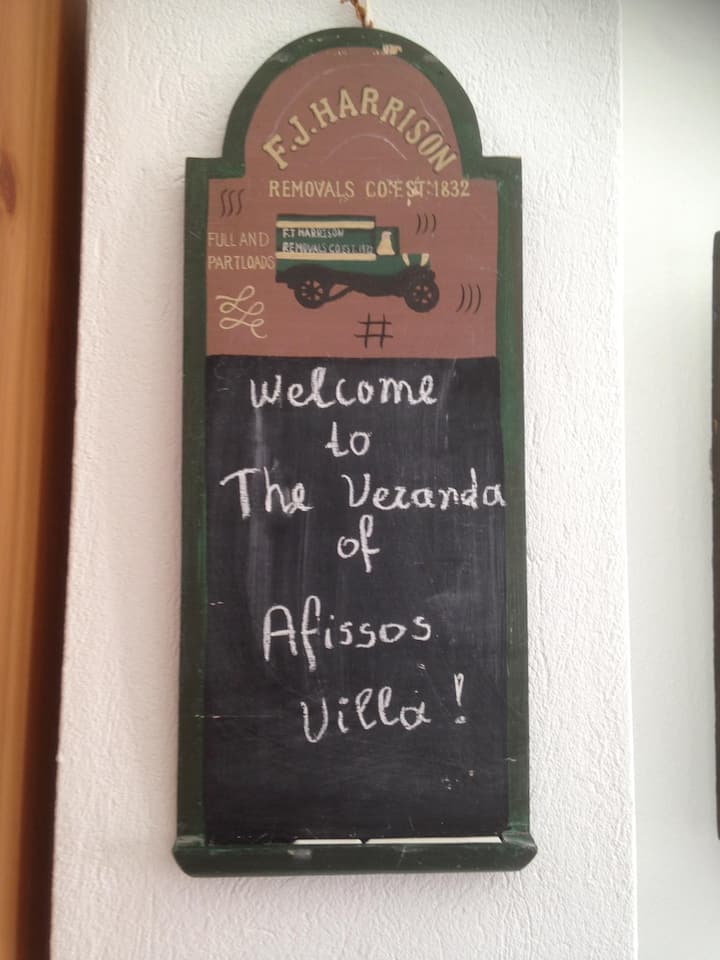 F.J.HARRISON
REMOVALS CO EST:1832
FULL AND
PARTLOADS
F.T HARRISON
REMOVALS CO EST.
#
Welcome
to
The Veranda
of
Afissos
Villa!